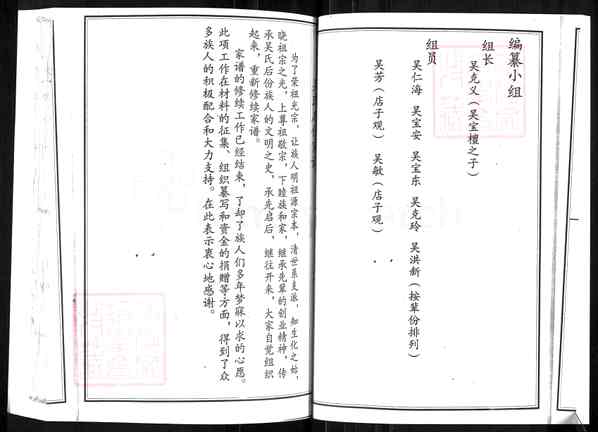 编纂小组
组长
吴克义（吴宝檀之子）
组员
吴仁海 吴宝安 吴宝东 吴克玲 吴洪新（按辈份排列）
吴芳（店子观） 吴敏（店子观）
为了荣祖光宗，让族人明祖源宗本，清世系支派，知生化之始，
晓祖宗之光，上尊祖敬宗，下睦族和家，继承先辈的创业精神，传
承吴氏后份族人的文明之史，承先启后，继往开来，大家自觉组织
起来，重新修续家谱。
家谱的修续工作已经结束，了却了族人们多年梦寐以求的心愿。
此项工作在材料的征集、组织纂写和资金的捐赠等方面，得到了众
多族人的积极配合和大力支持。在此表示衷心地感谢。